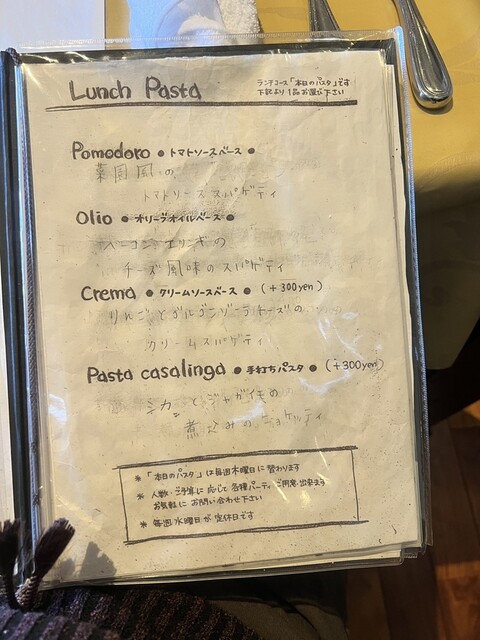 Lunch Pasta
ランチコース「本日のパスタ」です
下記より1品お選び下さい
Pomodoro ● トマトソースベース ●
菜園風の
トマトソーススパゲティ
Olio ● オリーブオイルベース ●
ベーコンとエリンギの
チーズ風味のスパゲティ
Crema ● クリームソースベース ● (+300yen)
りんごとゴルゴンゾーラチーズの
クリームスパゲティ
Pasta casalinga ● 手打ちパスタ ● (+300yen)
シカ とジャガイモの
煮込みのニョケッティ
※「本日のパスタ」は毎週木曜日に替わります
※ 人数・ご予算に応じて各種パーティーご用意出来ます
お気軽にお問い合わせ下さい
※ 毎週水曜日が定休日です